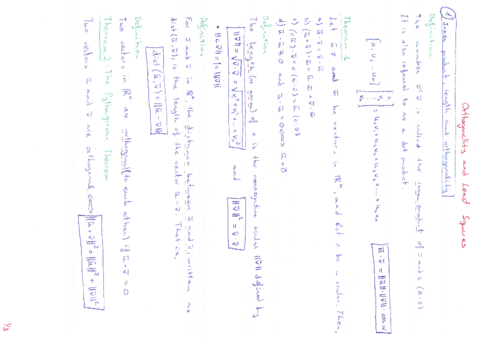 Orthogonality and Least Squares
① Inner product, length and orthogonality
Definition
The number uᵀv is called the inner product of u and v (u·v)
It is also referred to as a dot product
[u₁ u₂ ... uₙ] [v₁ v₂ ⋮ vₙ] = u₁v₁ + u₂v₂ + u₃v₃ + ... + uₙvₙ
u̅ · v̅ = ||u̅|| · ||v̅|| · cos α
Theorem 1
Let u̅, v̅ and w̅ be vectors in ℝⁿ, and let c be a scalar. Then,
a) u̅·v̅ = v̅·u̅
b) (u̅+v̅)·w̅ = u̅·w̅ + v̅·w̅
c) (cu̅)·v̅ = c(u̅·v̅) = u̅·(cv̅)
d) u̅·u̅ ≥ 0 and u̅·u̅ = 0 <=> u̅ = 0
Definition
The length (or norm) of v is the nonnegative scalar ||v̅|| defined by
||v̅|| = √v̅·v̅ = √v₁² + v₂² + ... + vₙ² and ||v̅||² = v̅·v̅
• ||cv̅|| = |c|·||v̅||
Definition
For u̅ and v̅ in ℝⁿ, the distance between u̅ and v̅, written as
dist(u̅,v̅), is the length of the vector u̅-v̅. That is,
dist(u̅,v̅) = ||u̅-v̅||
Definition
Two vectors in ℝⁿ are orthogonal (to each other) if u̅·v̅ = 0
Theorem 2: The Pythagorean Theorem
Two vectors u̅ and v̅ are orthogonal <=> ||u̅+v̅||² = ||u̅||² + ||v̅||²